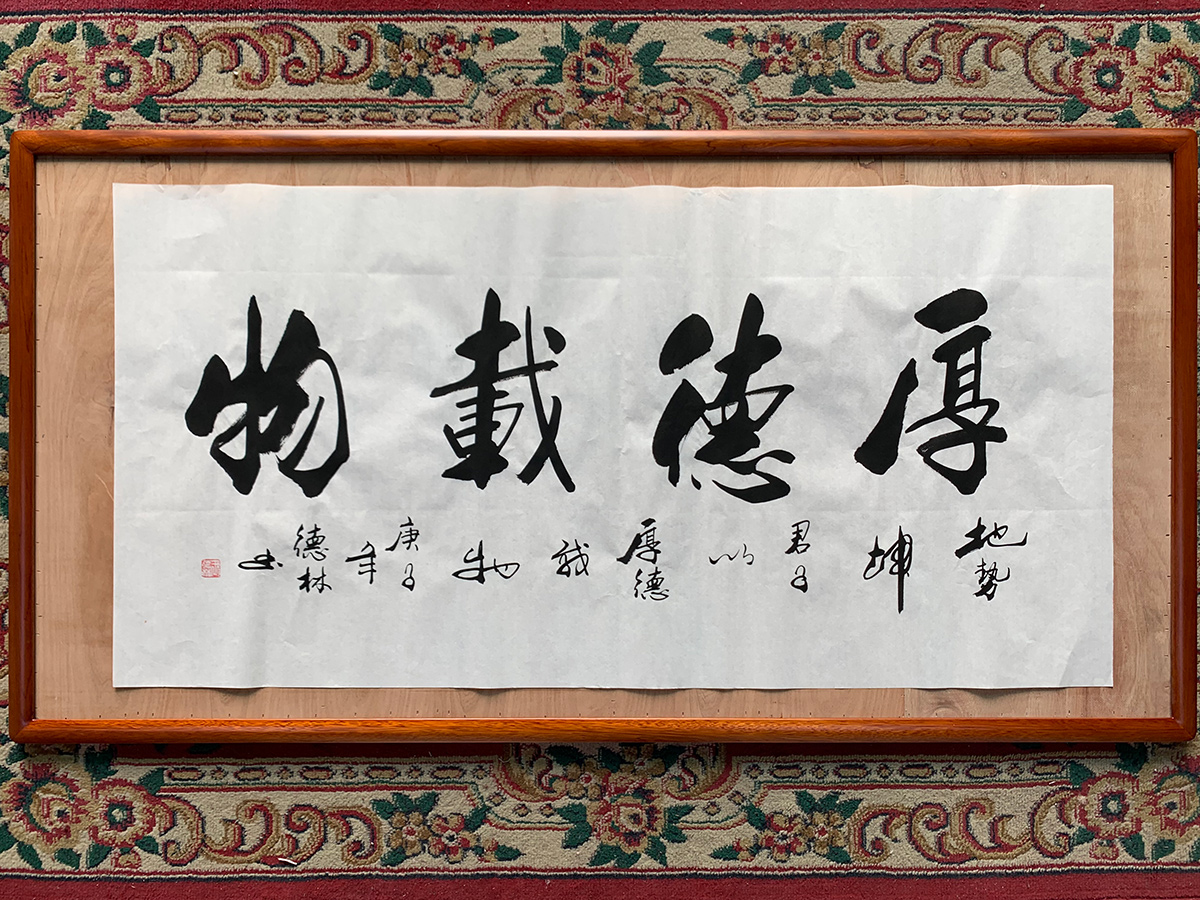 厚德載物
地勢坤君子以厚德載物庚子年德林書